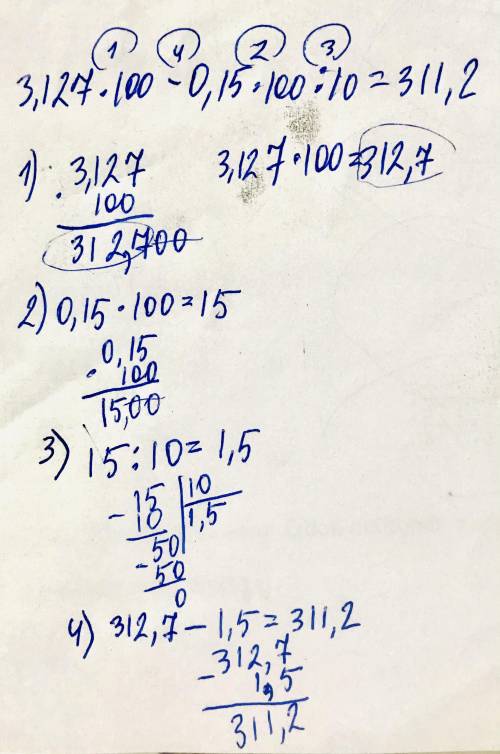 1 4 2 3
3,127·100 - 0,15·100:10=311,2
1) 3,127 3,127·100=312,7
· 100
312,700
2) 0,15·100=15
0,15
· 100
15,00
3) 15:10=1,5
- 15 | 10
10 1,5
- 50
50
0
4) 312,7 - 1,5=311,2
- 312,7
1,5
311,2